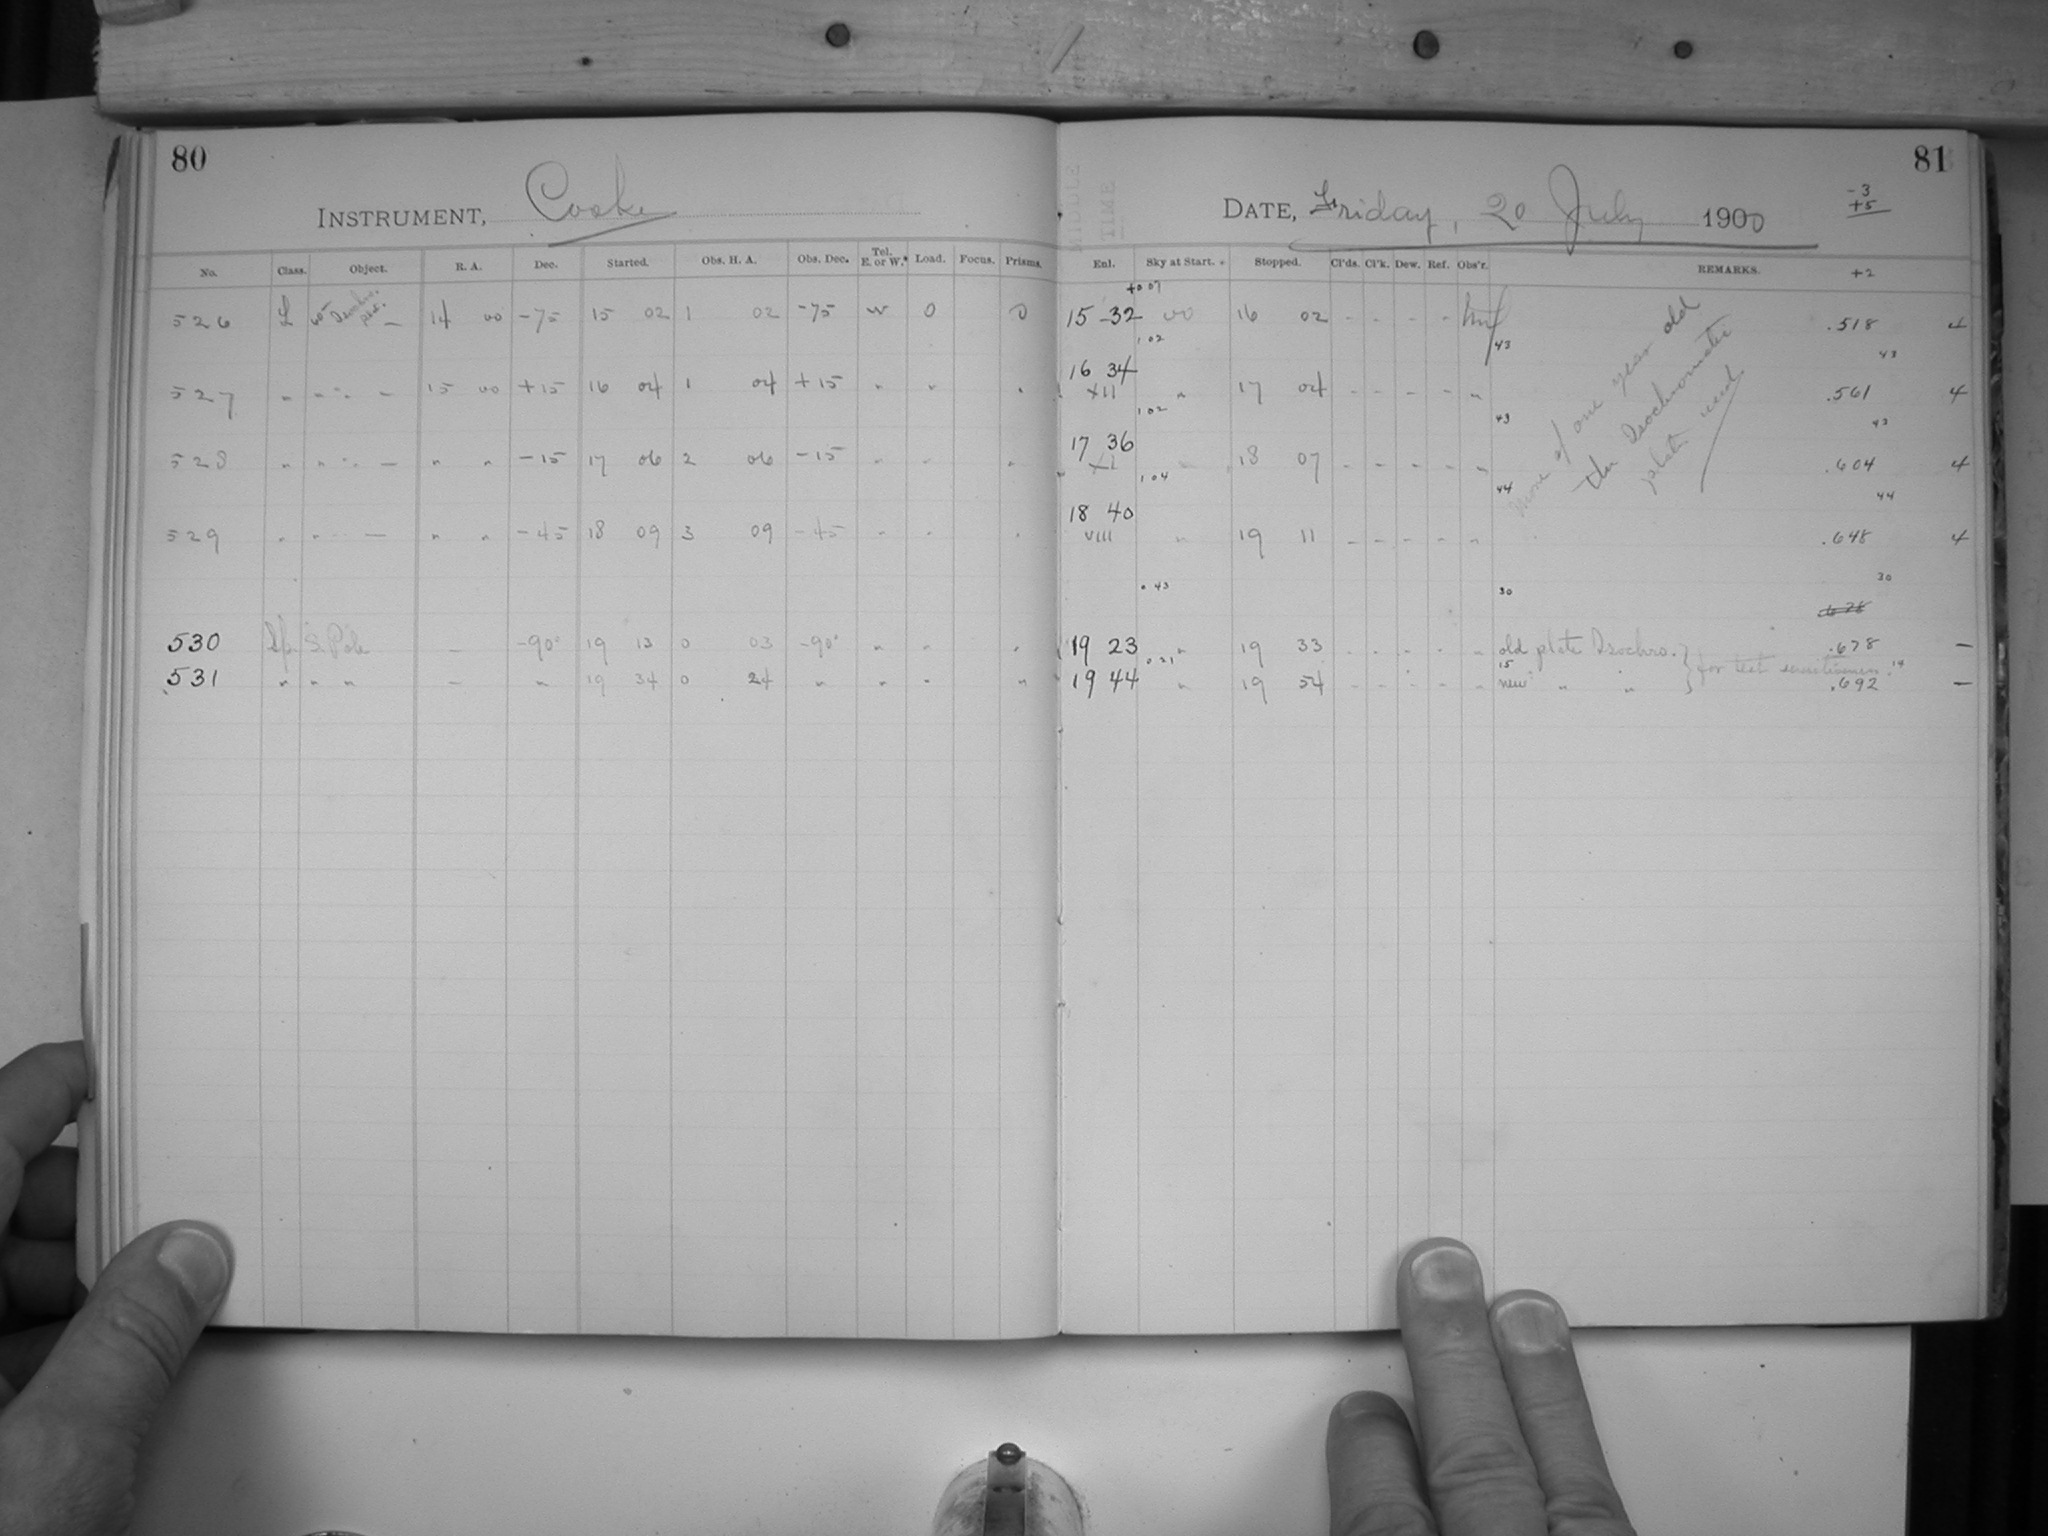 80
INSTRUMENT, Cooke
No. Class. Object. R. A. Dec. Started. Obs. H. A. Obs. Dec. Tel. E. or W. Load. Focus. Prisms.
526 L 14 00 -75 15 02 1 02 -75 W 0 0
527 " " " — 15 00 +15 16 04 1 04 +15 " " "
528 " " " — " " -15 17 06 2 06 -15 " " "
529 " " — " " -45 18 09 3 09 -45 " " "
530 Sp. S. Pole — -90° 19 13 0 03 -90° " " "
531 " " " — " 19 34 0 24 " " " "
81
DATE, Friday, 20 July 1900
-3
+5
+2
MIDDLE
TIME
Enl. Sky at Start. Stopped. Cl'ds. Cl'k. Dew. Ref. Obs'r. REMARKS.
+0 07
15 32 00 16 02 - - - - .518 4
1 02 43 43
16 34
XII " 17 04 - - - - " .561 4
1 02 43 43
17 36
XI 18 07 - - - - " .604 4
1 04 44 44
18 40
VIII " 19 11 - - - - " .648 4
0 43 30 30
.678
More of one year old
the Isochromatic
plates used
19 23 " 19 33 - - - - " old plate Isochro. } for test .678 —
0 21 15 14
19 44 " 19 54 - - - - " new " " .692 —